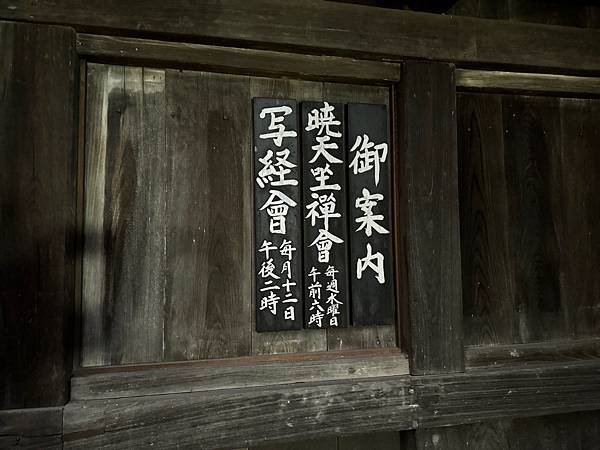 御案内
暁天坐禅會
毎週水曜日
午前六時
写経會
毎月十二日
午後二時